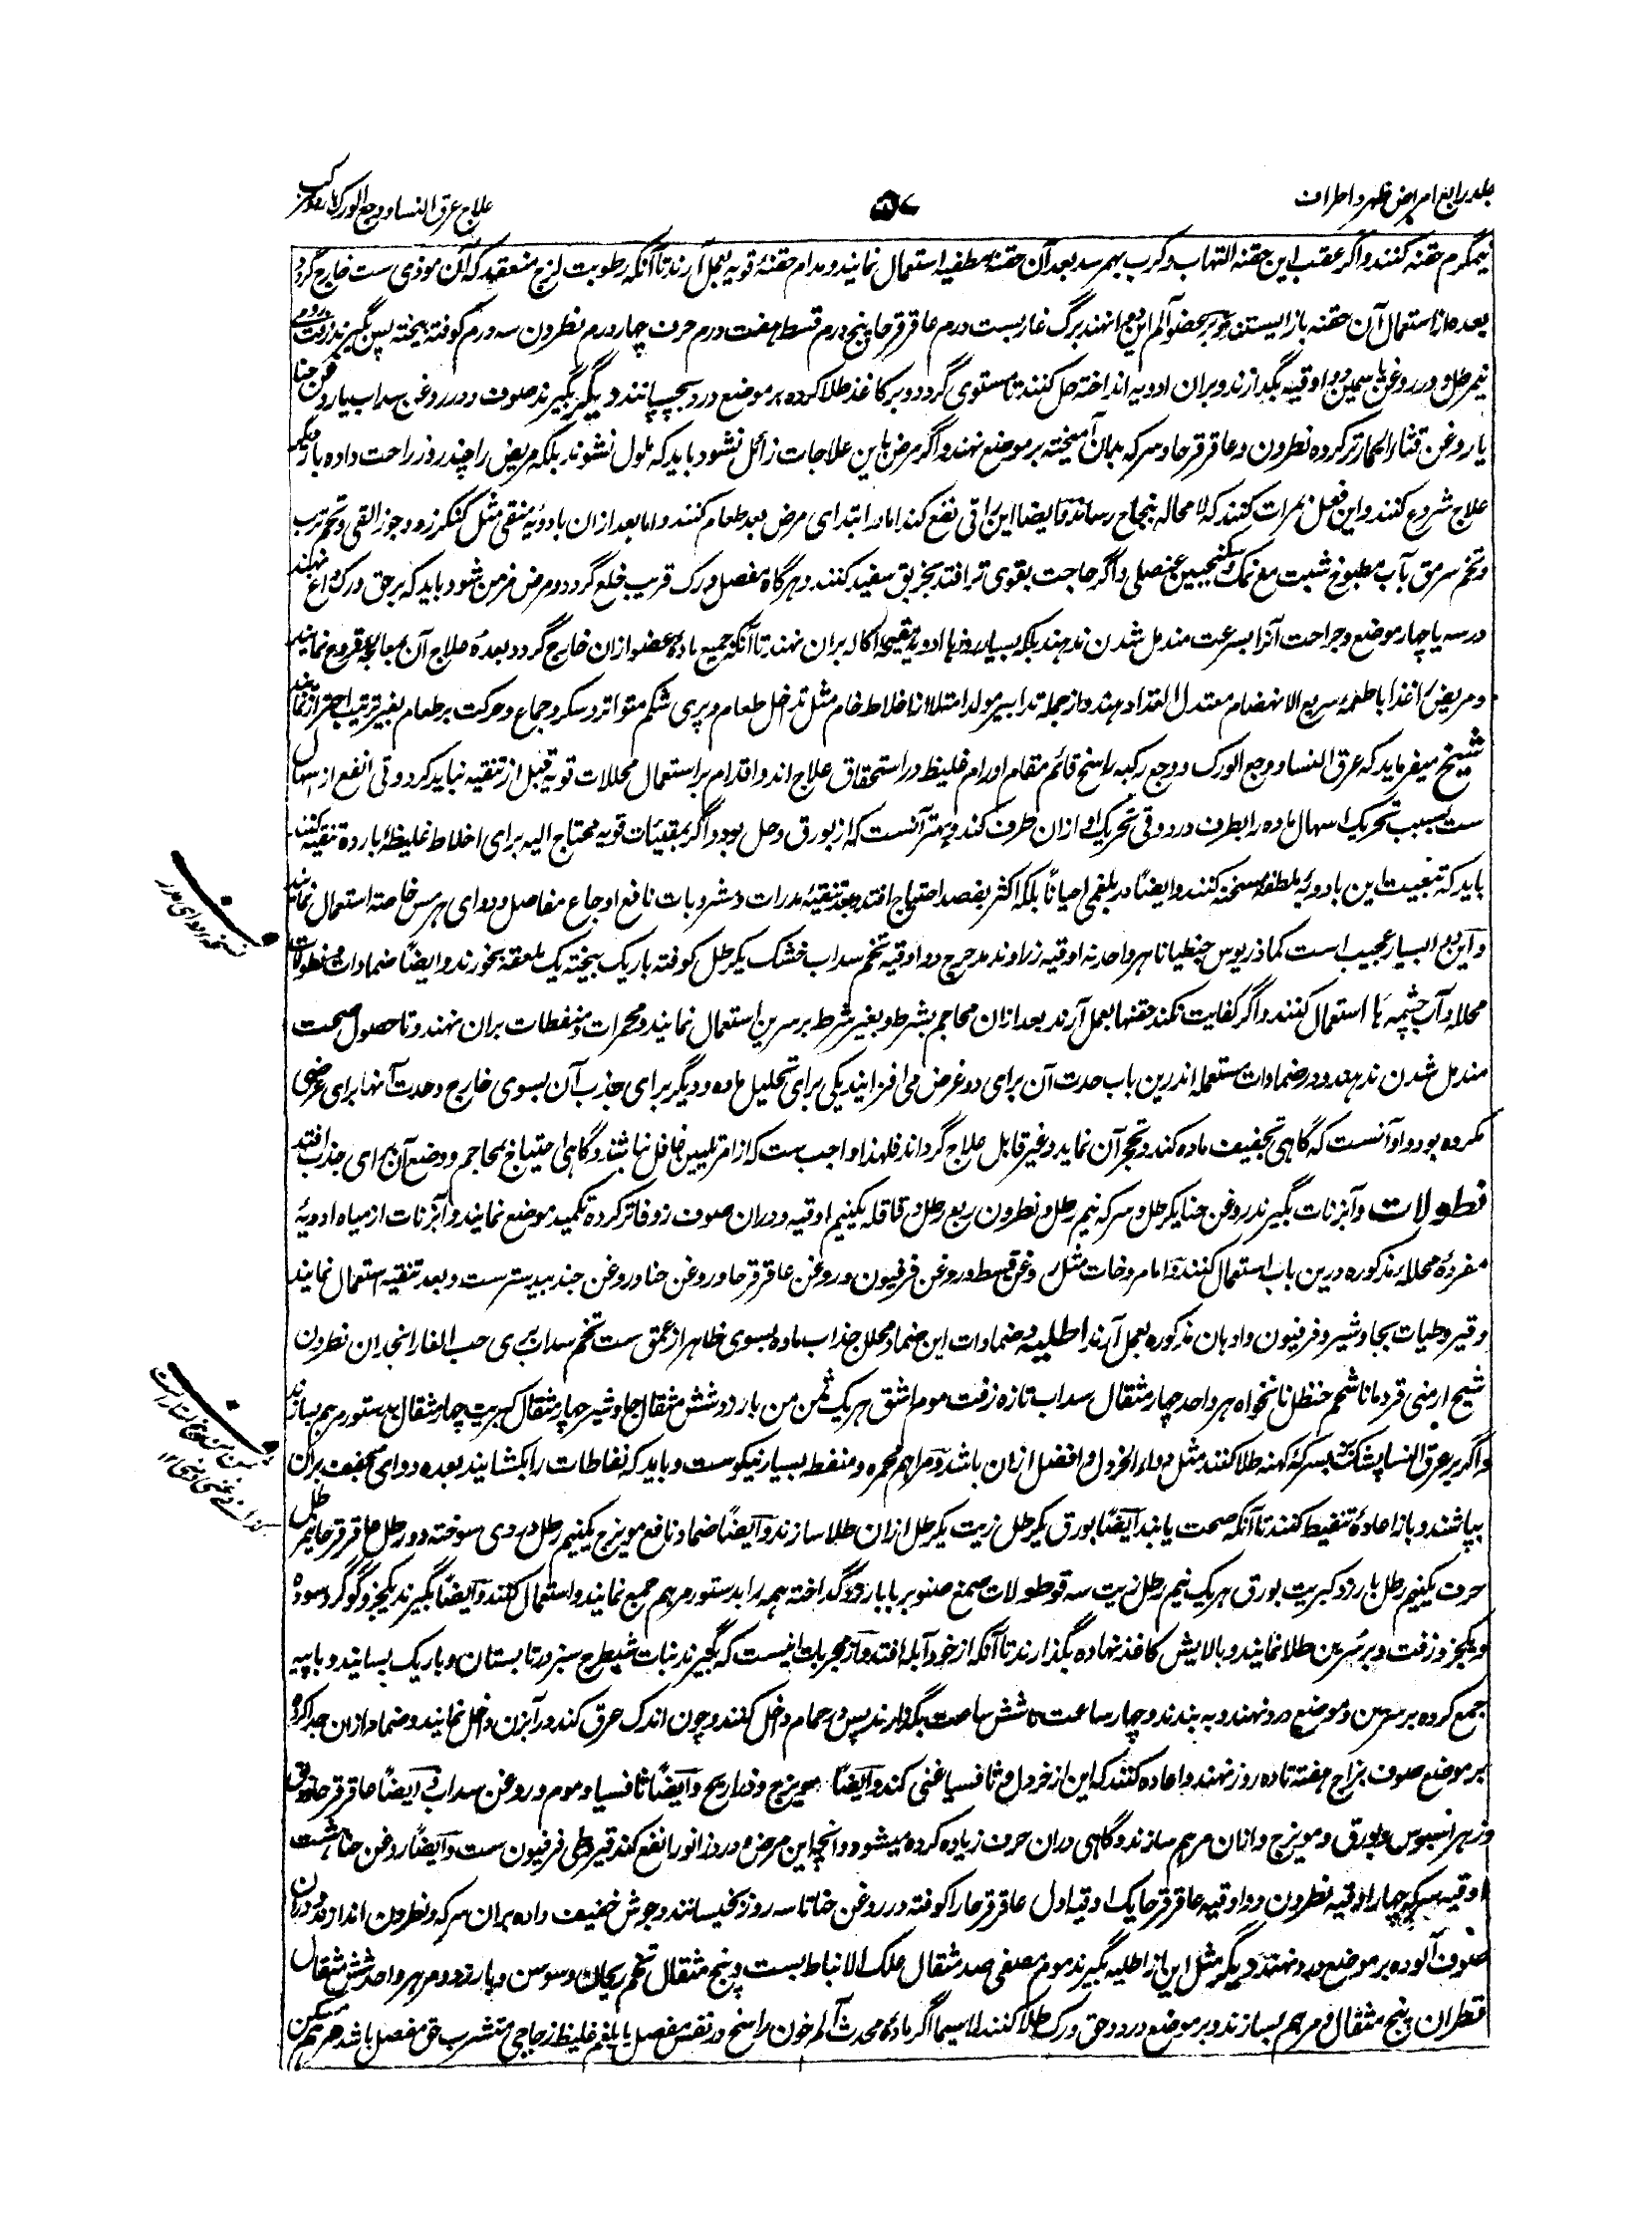 جلد رابع امراض ظهر و اطراف
۵۸۷
علاج عرق النسا و وجع الورک بارد و مرکب
نیمگرم حقنه کنند و اگر عقب این حقنه التهاب و کرب بهم رسد بعد آن حقنهٔ مطفیه استعمال نمایند و مدام حقنهٔ قویه بعمل آرند تا آنکه رطوبت لزج منعقد که آن موذی ست خارج گردد
بعده از استعمال آن حقنه باز ایستند و بر عضو آلم این دوا نهند برگ غار بست درم عاقرقرحا پنج درم قسط هفت درم حرف چار درم نطرون سه درم کوفته بیخته پس بگیرند زفت
نیم رطل و در روغن یاسمین دو اوقیه بگدازند و بران ادویه انداخته حل کنند تا مستوی گردد و بر کاغذ طلا کرده بر موضع درد بچسپانند دیگر بگیرند صوف و در روغن سداب یا روغن حنا
یا روغن قثاء الحمار تر کرده نطرون و عاقرقرحا و سرکه بدان آمیخته بر موضع نهند و اگر مرض باین علاجات زائل نشود باید که ملول نشوند بلکه مریض را چند روز راحت داده باز دیگر
علاج شروع کنند و این فعل بمرات کنند که لا محاله بنجاح رساند و ایضا این را قی نفع کند اما در ابتدای مرض بعد طعام کنند و اما بعد ازان بادویهٔ منقی مثل کنکرزد و جوز القی و تخم ترب
و تخم سرمق بآب مطبوخ شبت مع نمک و سکنجبین عنصلی و اگر حاجت بقوی تر افتد بخربق سفید کنند و هرگاه مفصل ورک قریب خلع گردد و مرض مزمن شود باید که بر حق ورک داغ نهند
در سه یا چار موضع و جراحت آنرا بسرعت مندمل شدن ندهند بلکه بسیار روزها ادویهٔ مقیحه اکاله بران نهند تا آنکه جمیع مادهٔ عضو ازان خارج گردد بعده علاج آن بمعالجهٔ قروح نمایند
و مریض را غذا باطعمهٔ سریع الانهضام معتدل الغذا دهند و از جمله تدابیر مولد امتلا از اخلاط خام مثل تداخل طعام و پری شکم متواتر و سکر و جماع و حرکت بر طعام بغیر ترتیب احتراز نمایند
شیخ میفرماید که عرق النسا و وجع الورک و وجع رکبه راسخ قائم مقام اورام غلیظ در استحقاق علاج اند و اقدام بر استعمال محللات قویه قبل از تنقیه نباید کرد و قی انفع از اسهال
ست بسبب تحریک اسهال ماده را بطرف درد و قی تحریک او ازان طرف کند و بهتر آنست که از بورق و خل بود و اگر بمقیئات قویه محتاج الیه برای اخلاط غلیظهٔ بارده تنقیه کنند
باید که تبعیت این بادویهٔ ملطفهٔ مسخنه کنند و ایضاً در بلغمی احیاناً بلکه اکثر بفصد احتیاج افتد و بعد تنقیه مدرات و مشروبات نافع اوجاع مفاصل و دوای هرمس خاصة استعمال نمایند
و این دوا بسیار عجیب است کماذریوس جنطیانا هر واحد نه اوقیه زراوند مدحرج دو اوقیه تخم سداب خشک یکرطل کوفته باریک بیخته یک ملعقه بخورند و ایضاً ضمادات و نطولات
محلله و آب چشمه ها استعمال کنند و اگر کفایت نکند حقنها بعمل آرند بعد ازان محاجم بشرط و بغیر شرط بر سرین استعمال نمایند و محمرات و منفطات بران نهند و تا حصول صحت
مندمل شدن ندهند و در ضمادات مستعمله اندرین باب حدت آن برای دو غرض می افزایند یکی برای تحلیل ماده و دیگر برای جذب آن بسوی خارج و حدت آنها برای غرضی
مکروه بود و او آنست که گاهی تجفیف ماده کند و تحجر آن نماید و غیر قابل علاج گرداند فلهذا واجب ست که از امر تلیین غافل نباشند و گاهی احتیاج بمحاجم و وضع آن برای جذب افتد
نطولات و آبزنات بگیرند روغن حنا یکرطل و سرکه نیم رطل و نطرون ربع رطل و قاقله یکنیم اوقیه و دران صوف زوفا تر کرده تکمید موضع نمایند و آبزنات از میاه ادویهٔ
مفردهٔ محلله مذکوره درین باب استعمال کنند و اما مروخات مثل روغن قسط و روغن فرفیون و روغن عاقرقرحا و روغن حنا و روغن جندبیدستر ست و بعد تنقیه استعمال نمایند
و قیروطیات بجاوشیر و فرفیون و ادهان مذکوره بعمل آرند اطلیه و ضمادات این ضماد محلل جذاب ماده بسوی ظاهر از عمق ست تخم سداب بری حب الغار انجدان نطرون
شیح ارمنی قردمانا شحم حنظل نانخواه هر واحد چهار مثقال سداب تازه زفت موم اشق هر یک ثمن من بارزد شش مثقال جاوشیر چهار مثقال کبریت چار مثقال بدستور مرهم سازند
و اگر بر عرق النسا پشک بز بسرکهٔ کهنه طلا کنند مثل دواء الخردل و افضل ازان باشد و مراهم محمره و منفطه بسیار نیکوست و باید که نفاطات را بکشایند بعده دوای مجفف بران
بپاشند و باز اعادهٔ تنفیط کنند تا آنکه صحت یابند ایضاً بورق یکرطل زیت یکرطل ازان طلا سازند و ایضاً ضماد نافع مویزج یکنیم رطل دردی سوخته دو رطل عاقرقرحا نیم رطل
حرف یکنیم رطل بارزد و کبریت بورق هر یک نیم رطل زیت سه قوطولات صمغ صنوبر با بارزد گداخته همه را بدستور مرهم جمع نمایند و استعمال کنند و ایضاً بگیرند یکجزو گوگرد سوده
و یکجزو زفت و بر سرین طلا نمایند و بالایش کاغذ نهاده بگذارند تا آنکه از خود آبله افتد و از مجربات اینست که بگیرند نبات شیطرج سبز در تابستان و باریک بسایند و با پیه
جمع کرده بر سرین و موضع درد نهند و به بندند و چهار ساعت تا شش ساعت بگذارند پس در حمام داخل کنند و چون اندک عرق کند در آبزن داخل نمایند و ضماد ازان جدا کرده
بر موضع صوف بزاج هفته تا ده روز نهند و اعاده کنند که این از خردل و ثافسیا غنی کند و ایضاً مویزج و ذراریح و ایضاً ثافسیا و موم و روغن سداب ایضاً عاقرقرحا و دبق
و زهر اسیوس و بورق و مویزج و ازان مرهم سازند و گاهی دران حرف زیاده کرده میشود و آنچه این مرض و درد زانو را نفع کند قیروطی فرفیون ست و ایضاً روغن حنا هشت
اوقیه سرکه چهار اوقیه نطرون دو اوقیه عاقرقرحا یک اوقیه اول عاقرقرحا را کوفته در روغن حنا تا سه روز بخیسانند و جوش خفیف داده بران سرکه و نطرون اندازند و دران
صوف آلوده بر موضع درد نهند دیگر مثل این از اطلیه بگیرند موم مصفی صد مثقال علک الانباط بست و پنج مثقال تخم ریحان و سوسن و بارزد و مر هر واحد شش مثقال
قطران پنج مثقال و مرهم بسازند و بر موضع درد و حق ورک طلا کنند لا سیما اگر مادهٔ محدث آلم خون راسخ در نفس مفصل یا بلغم غلیظ زجاجی متشرب حق مفصل باشد مرهم مسکن